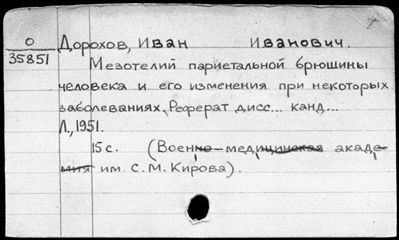 О
35851
Дорохов, Иван Иванович.
Мезотелий париетальной брюшины
человека и его изменения при некоторых
заболеваниях. Реферат дисс... канд...
Л., 1951.
15 с. (Военно-медицинская акаде-
мия им. С. М. Кирова).